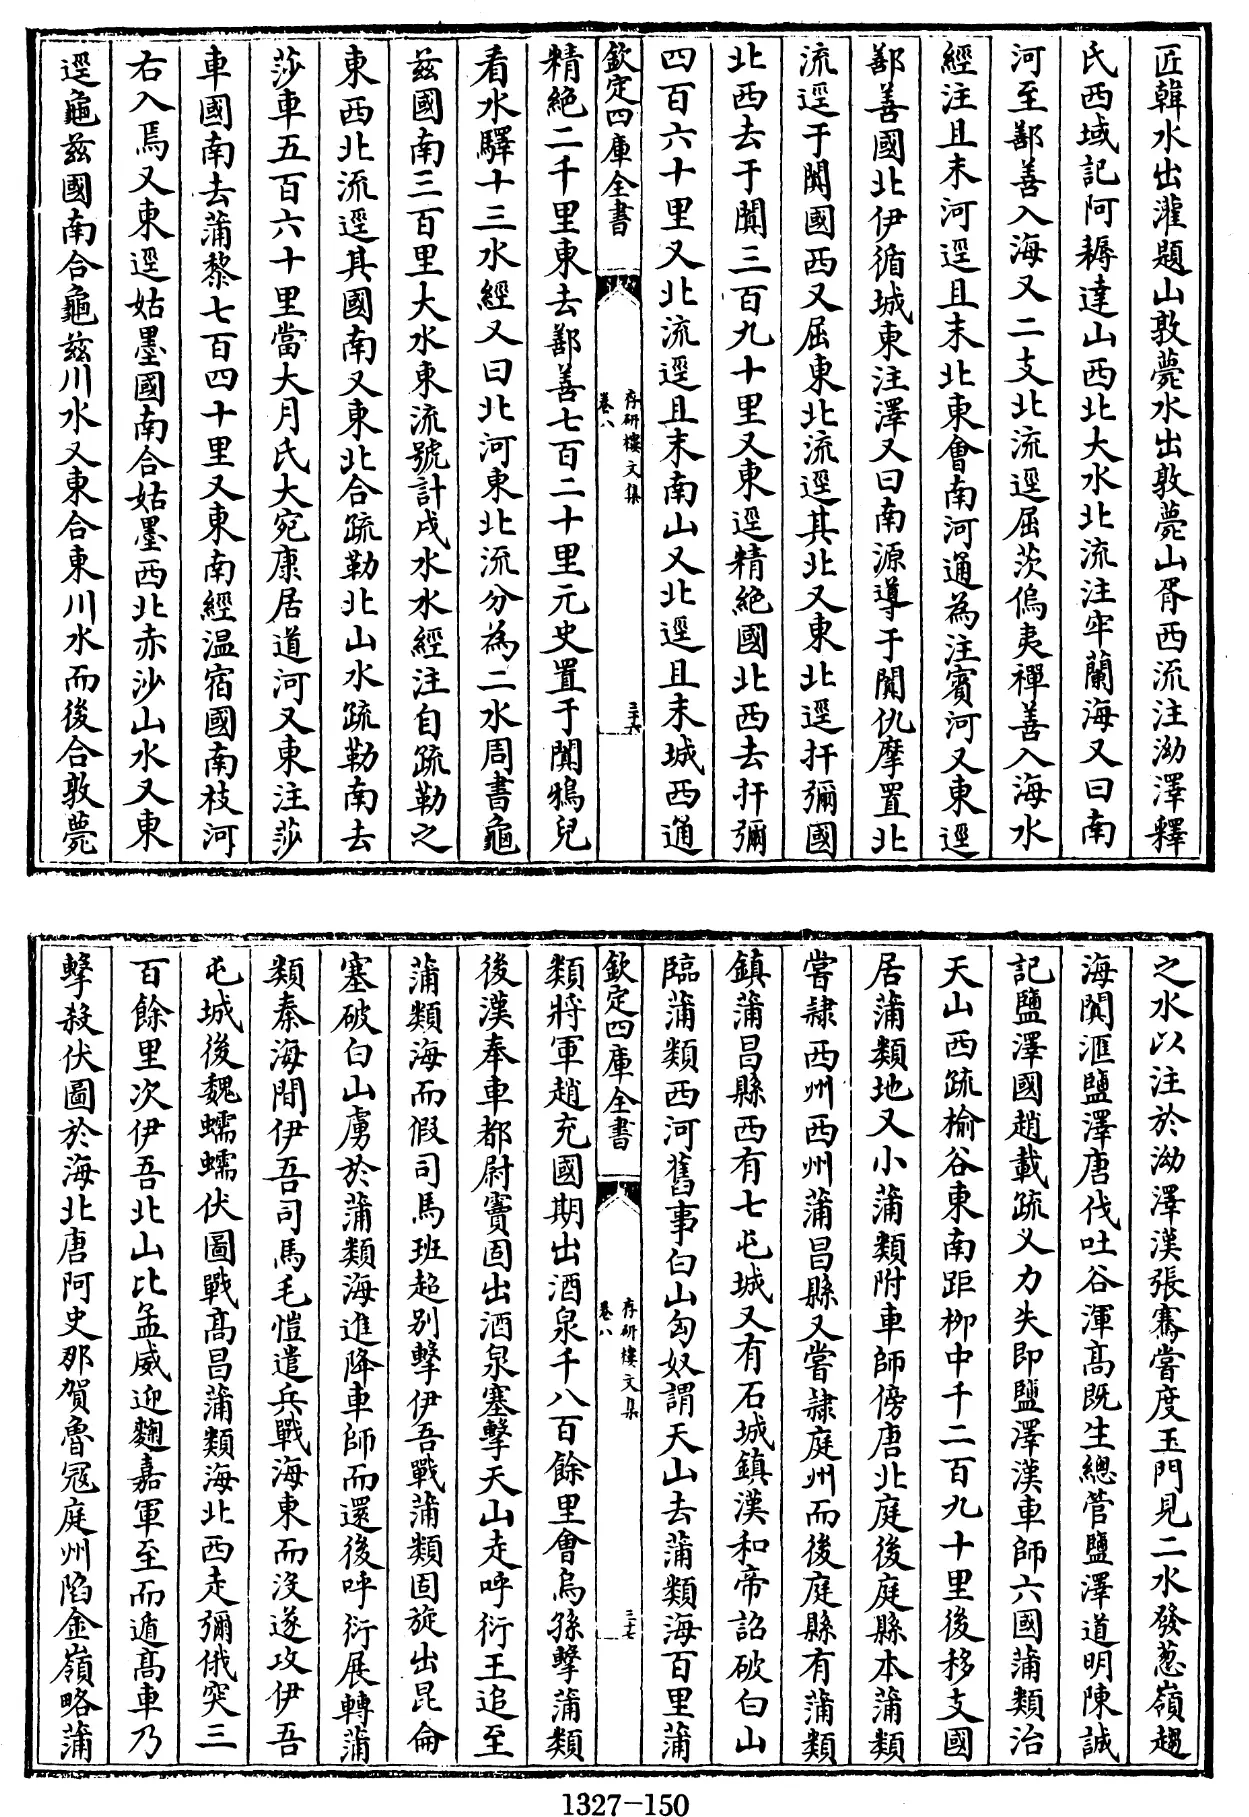 匠韓水出灌題山敦薨水出敦薨山胥西流注泑澤釋
氏西域記阿耨達山西北大水北流注牢蘭海又曰南
河至鄯善入海又二支北流逕屈茨僞夷禪善入海水
經注且末河逕且末北東會南河通為注賓河又東逕
鄯善國北伊循城東注澤又曰南源導于闐仇摩置北
流逕于闐國西又屈東北流逕其北又東北逕扜彌國
北西去于闐三百九十里又東逕精絶國北西去扜彌
四百六十里又北流逕且末南山又北逕且末城西通
欽定四庫全書
存研樓文集
卷八
三十六
精絶二千里東去鄯善七百二十里元史置于闐鴉兒
看水驛十三水經又曰北河東北流分為二水周書龜
兹國南三百里大水東流號計戍水水經注自疏勒之
東西北流逕其國南又東北合疏勒北山水疏勒南去
莎車五百六十里當大月氏大宛康居道河又東注莎
車國南去蒲黎七百四十里又東南經温宿國南枝河
右入焉又東逕姑墨國南合姑墨西北赤沙山水又東
逕龜兹國南合龜兹川水又東合東川水而後合敦薨
之水以注於泑澤漢張騫嘗度玉門見二水發葱嶺趨
海闐滙鹽澤唐伐吐谷渾髙既生總管鹽澤道明陳誠
記鹽澤國趙載疏义力失即鹽澤漢車師六國蒲類治
天山西疏榆谷東南距栁中千二百九十里後移支國
居蒲類地又小蒲類附車師傍唐北庭後庭縣本蒲類
嘗隷西州西州蒲昌縣又嘗隷庭州而後庭縣有蒲類
鎮蒲昌縣西有七屯城又有石城鎮漢和帝詔破白山
臨蒲類西河舊事白山匈奴謂天山去蒲類海百里蒲
欽定四庫全書
存研樓文集
卷八
三十七
類將軍趙充國期出酒泉千八百餘里會烏孫擊蒲類
後漢奉車都尉竇固出酒泉塞擊天山走呼衍王追至
蒲類海而假司馬班超别擊伊吾戰蒲類固旋出昆侖
塞破白山虜於蒲類海進降車師而還後呼衍展轉蒲
類秦海間伊吾司馬毛愷遣兵戰海東而没遂攻伊吾
屯城後魏蠕蠕伏圖戰髙昌蒲類海北西走彌俄突三
百餘里次伊吾北山比孟威迎麴嘉軍至而遁髙車乃
擊殺伏圖於海北唐阿史那賀魯冦庭州陷金嶺略蒲
1327-150